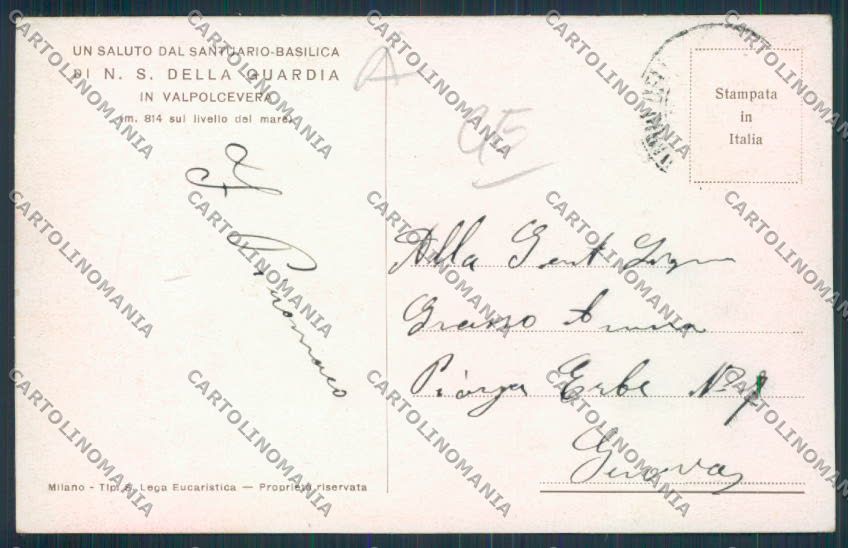 UN SALUTO DAL SANTUARIO-BASILICA
DI N. S. DELLA GUARDIA
IN VALPOLCEVERA
(m. 814 sul livello del mare)
Stampata
in
Italia
Alla Gent. Sign
Grasso Anna
Piazza Erbe No 7
Genova
Milano - Tip. S. Lega Eucaristica — Proprietà riservata
CARTOLINOMANIA